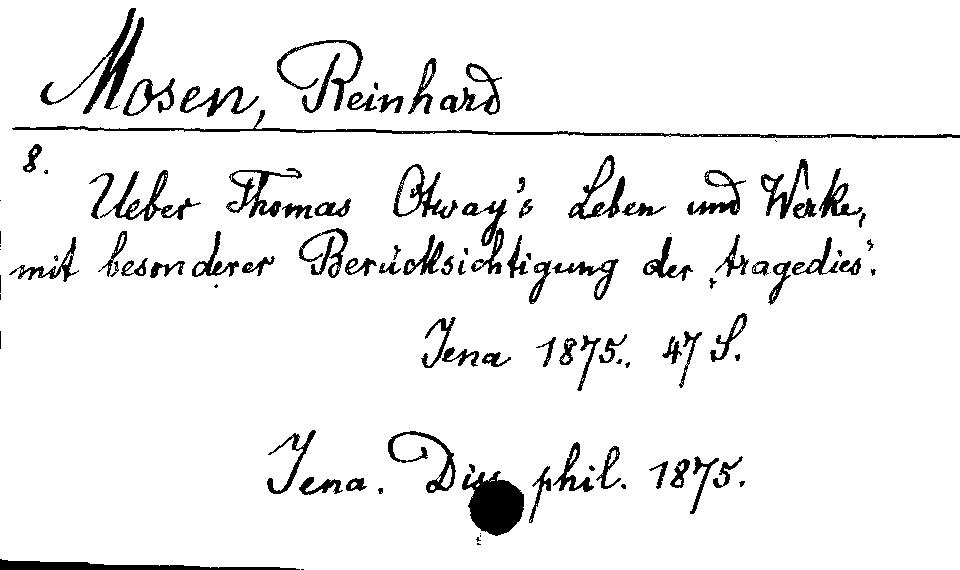 Mosen, Reinhard
8.
Ueber Thomas Otway's Leben und Werke,
mit besonderer Berücksichtigung der ‚tragedies'.
Jena 1875. 47 S.
Jena. Diss. phil. 1875.